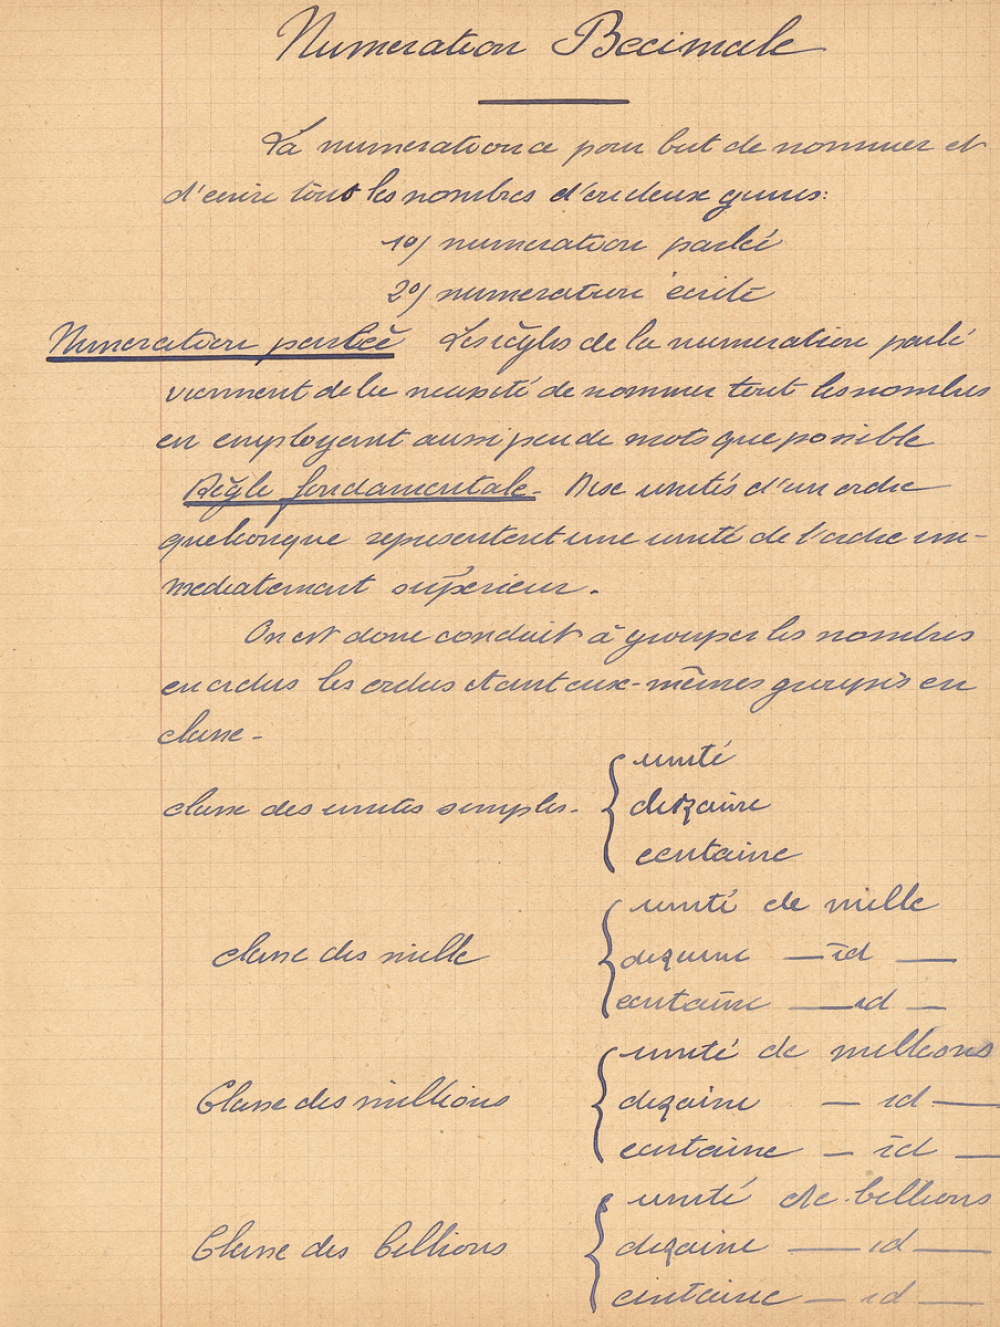 Numeration Decimale
La numeration a pour but de nommer et
d'ecrire tous les nombres d'ou deux genres:
1o/ numeration parlée
2o/ numeration écrite
Numeration parlée Les règles de la numeration parlé
viennent de la necessité de nommer tout les nombres
en employant aussi peu de mots que possible
Règle fondamentale. Dix unités d'un ordre
quelconque representent une unité de l'ordre im-
mediatement supérieur.
On est donc conduit à grouper les nombres
en ordres les ordres etant eux-mêmes groupés en
classe-
classe des unites simples-
{ unité
dizaine
centaine
classe des mille
{ unité de mille
dizaine — id —
centaine — id —
Classe des millions
{ unité de millions
dizaine — id —
centaine — id —
Classe des billions
{ unité de billions
dizaine — id —
centaine — id —